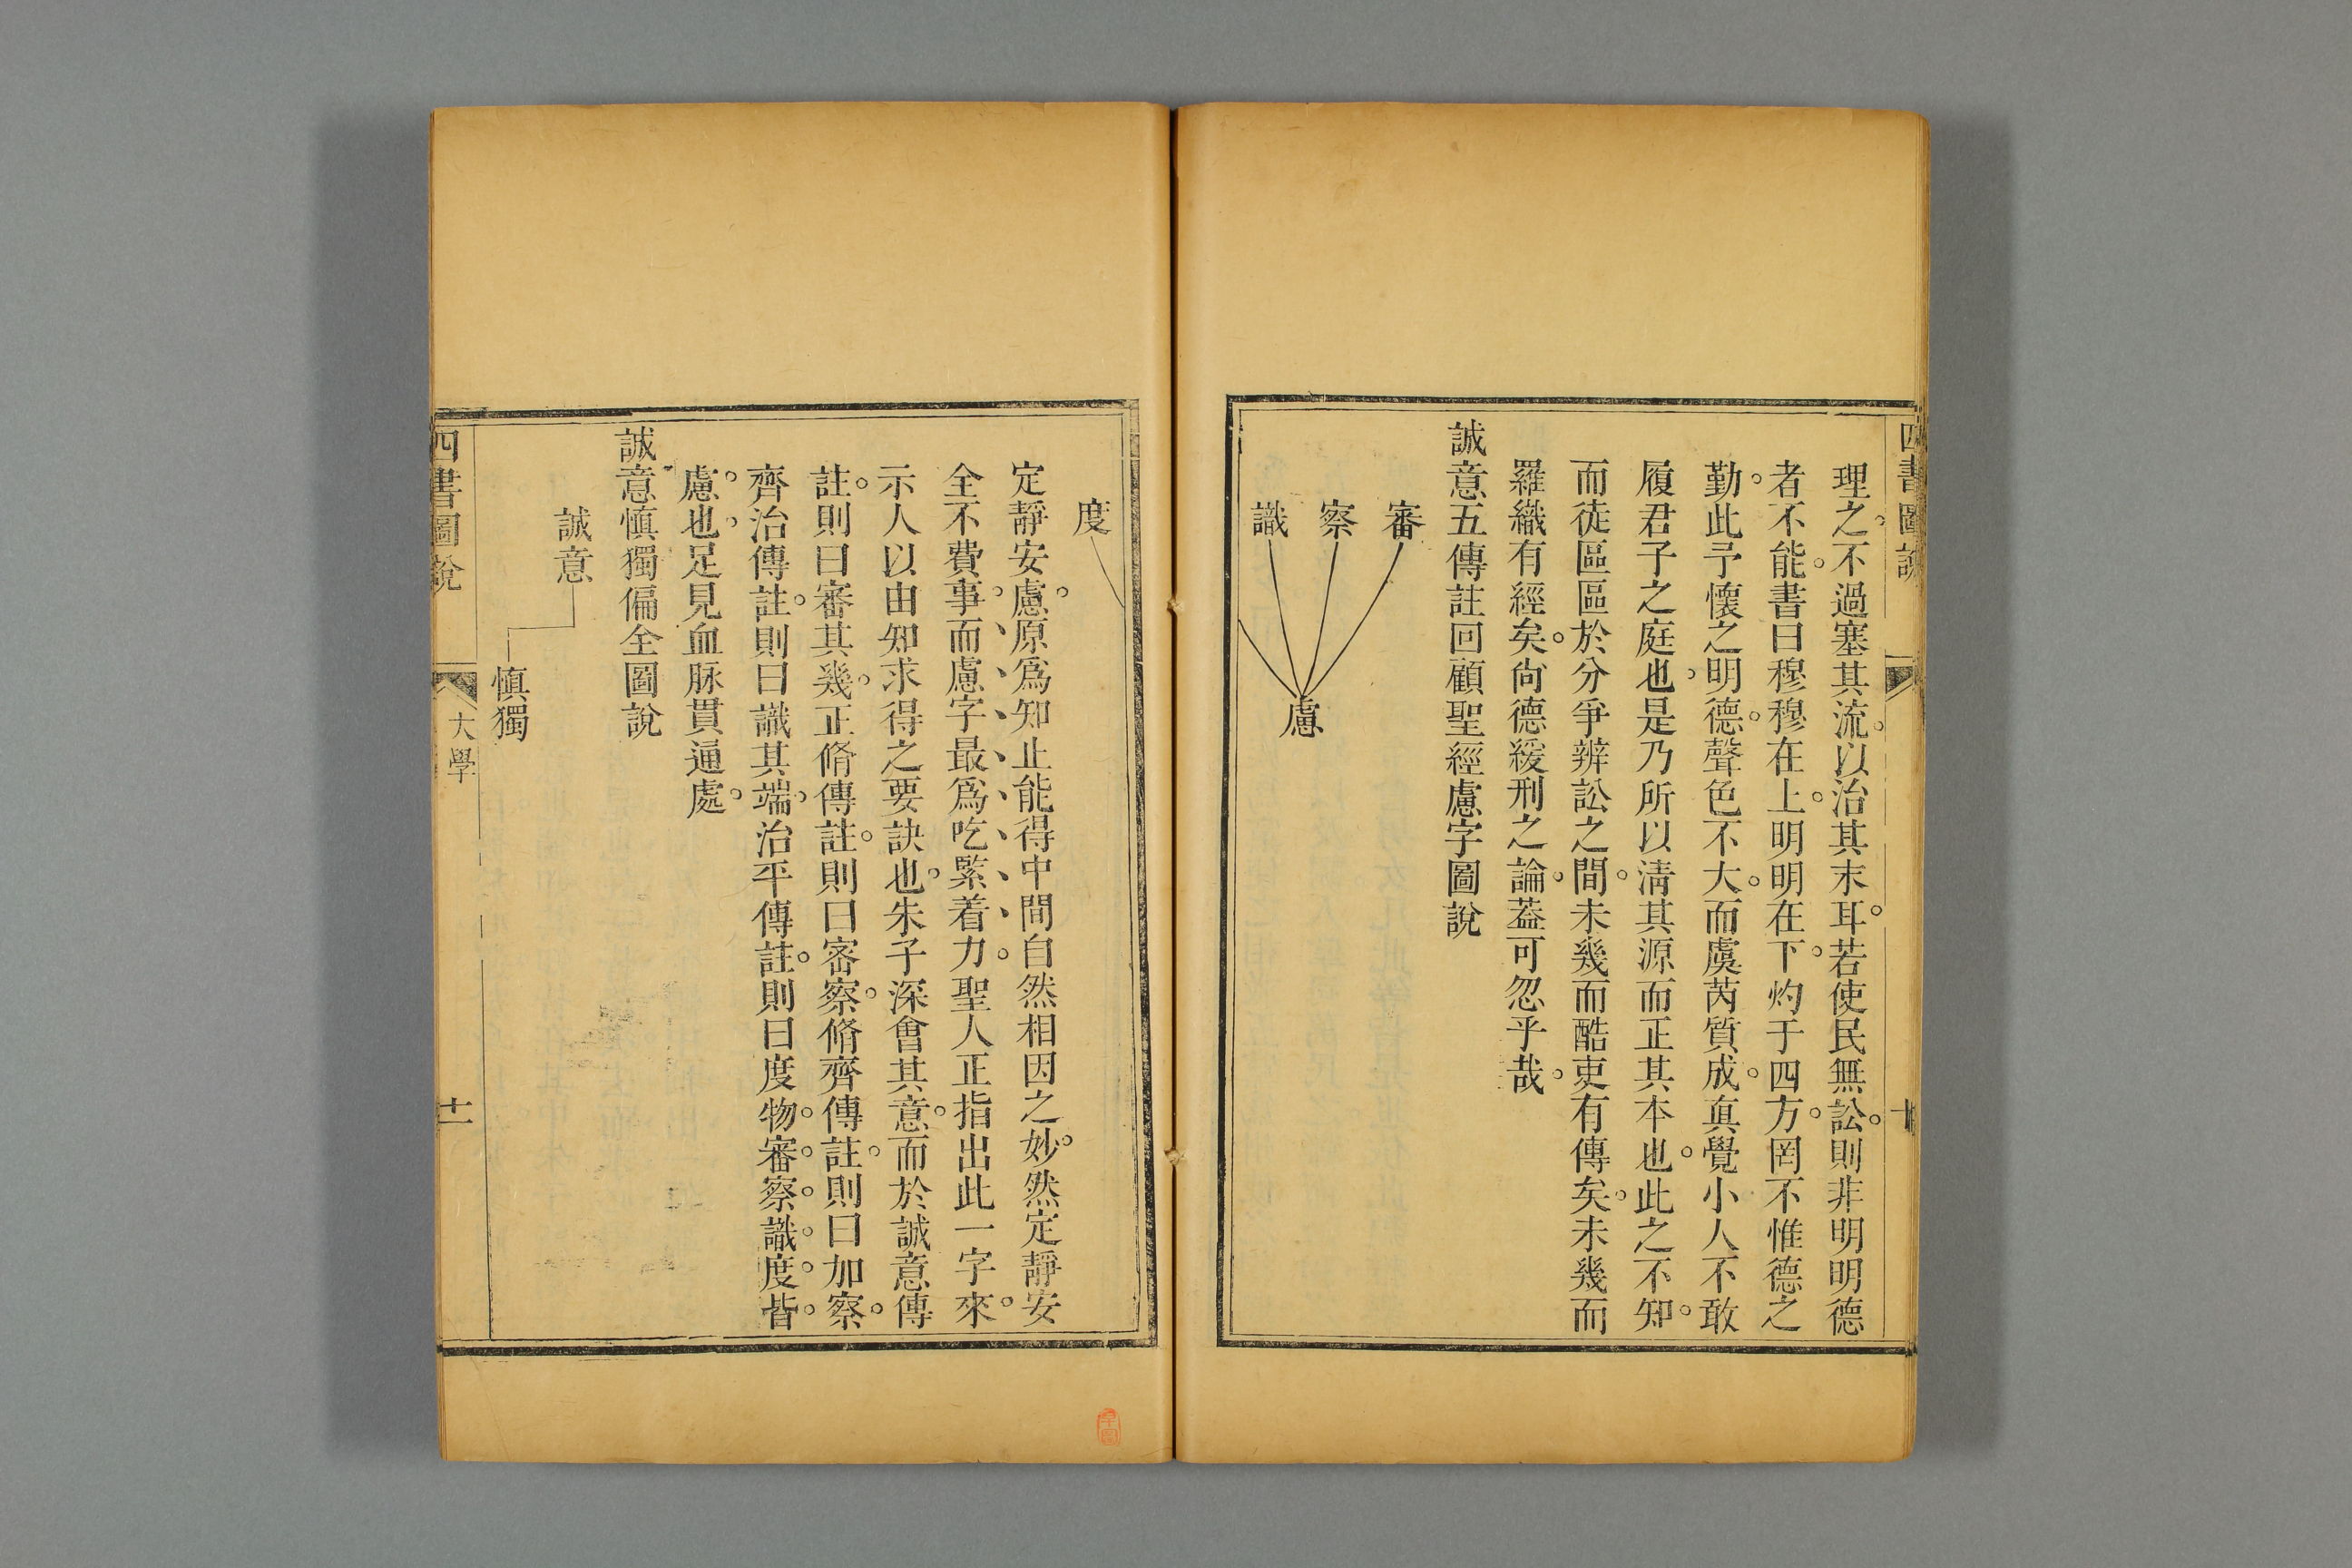 四書圖說
十
理之不過塞其流以治其末耳若使民無訟則非明明德
者不能書曰穆穆在上明明在下灼于四方罔不惟德之
勤此予懷之明德聲色不大而虞芮質成眞覺小人不敢
履君子之庭也是乃所以淸其源而正其本也此之不知
而徒區區於分爭辨訟之間未幾而酷吏有傳矣未幾而
羅織有經矣尙德緩刑之論蓋可忽乎哉
誠意五傳註回顧聖經慮字圖說
審
察
識
慮
度
定靜安慮原爲知止能得中間自然相因之妙然定靜安
全不費事而慮字最爲吃緊着力聖人正指出此一字來
示人以由知求得之要訣也朱子深會其意而於誠意傳
註則曰審其幾正脩傳註則曰密察脩齊傳註則曰加察
齊治傳註則曰識其端治平傳註則曰度物審察識度皆
慮也足見血脉貫通處
誠意慎獨偏全圖說
誠意
慎獨
四書圖說
大學
十一